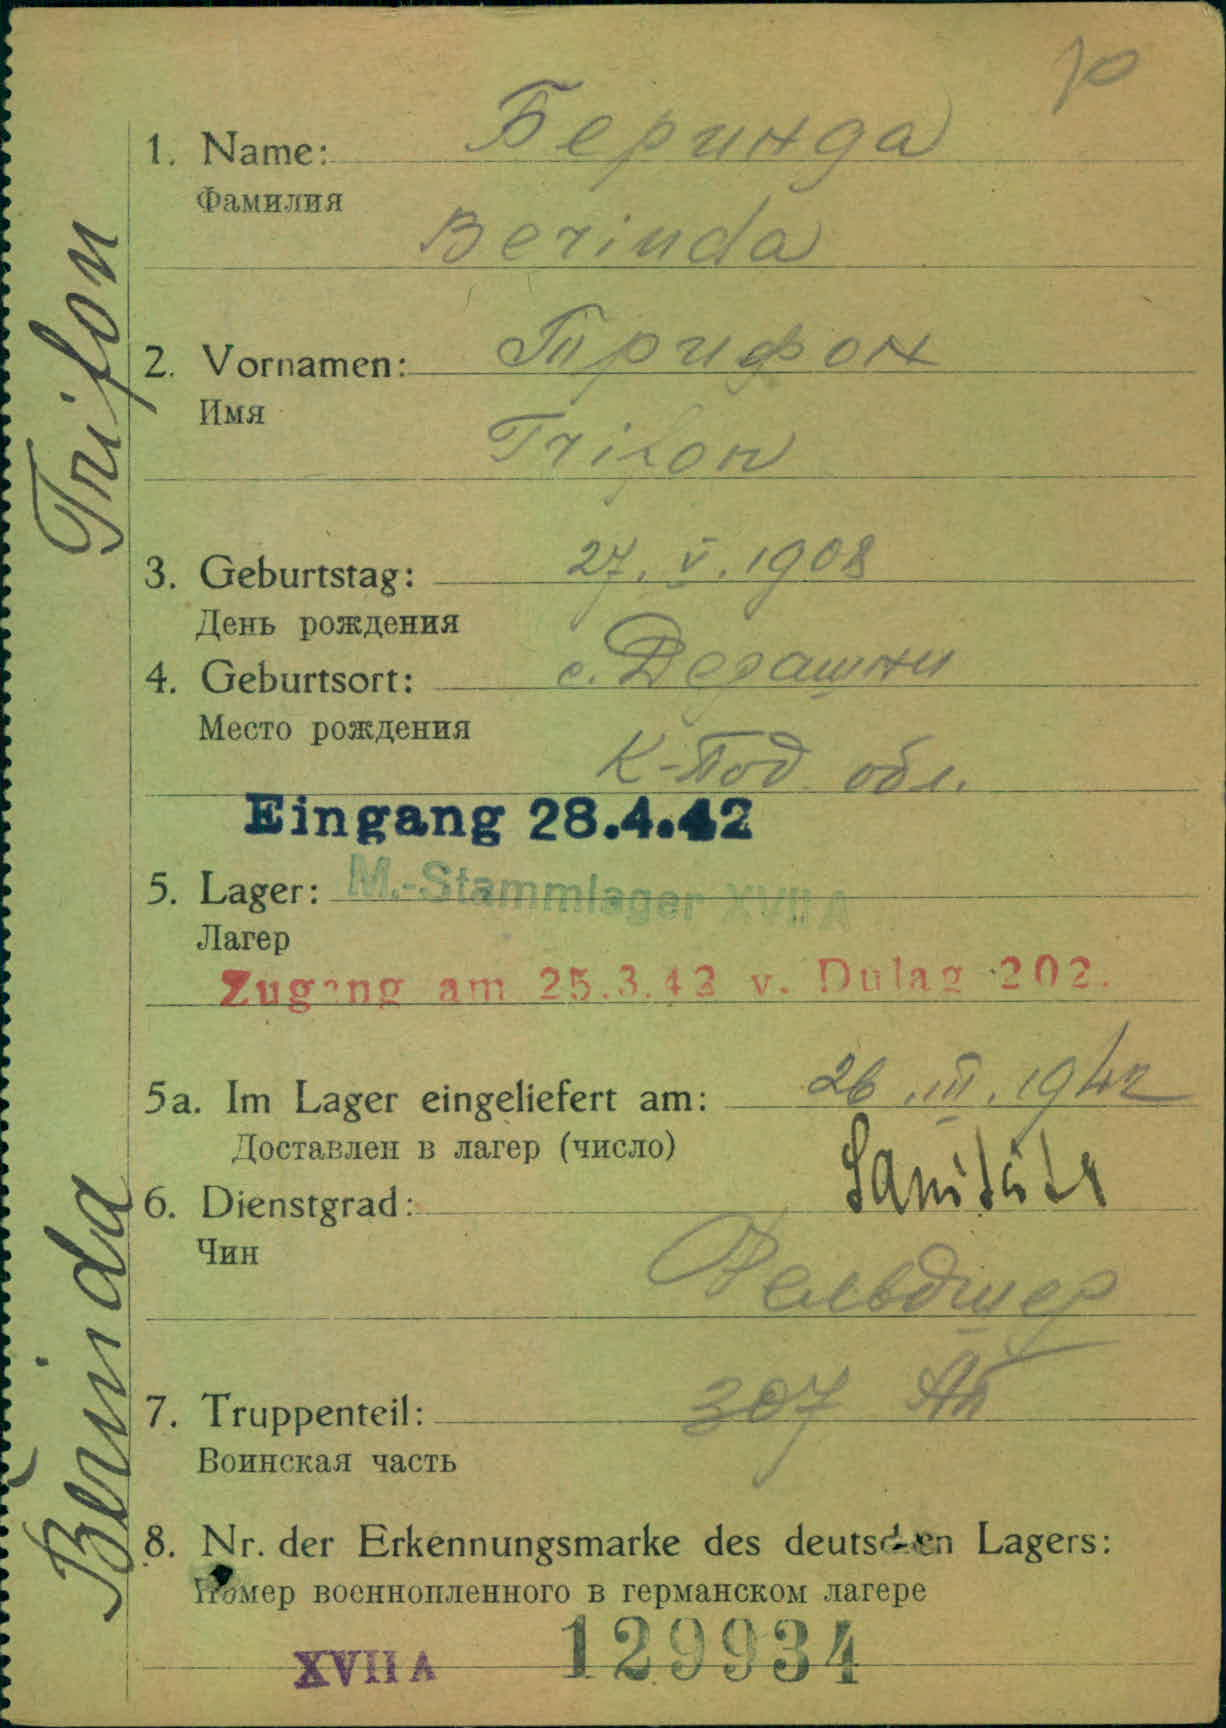 1. Name: Беринда
Фамилия
Berinda
2. Vornamen: Трифон
Имя
Trifon
3. Geburtstag: 27. V. 1908
День рождения
4. Geburtsort: с. Дерашни
Место рождения
К-Под. обл.
Eingang 28.4.42
5. Lager: M.-Stammlager XVII A
Лагер
Zugang am 25.3.42 v. Dulag 202.
5a. Im Lager eingeliefert am: 26. III. 1942
Доставлен в лагер (число)
6. Dienstgrad: Sanitäts
Чин
Фельдшер
7. Truppenteil: 307 Ап
Воинская часть
8. Nr. der Erkennungsmarke des deutschen Lagers:
Номер военнопленного в германском лагере
XVII A 129934
Berinda Trifon